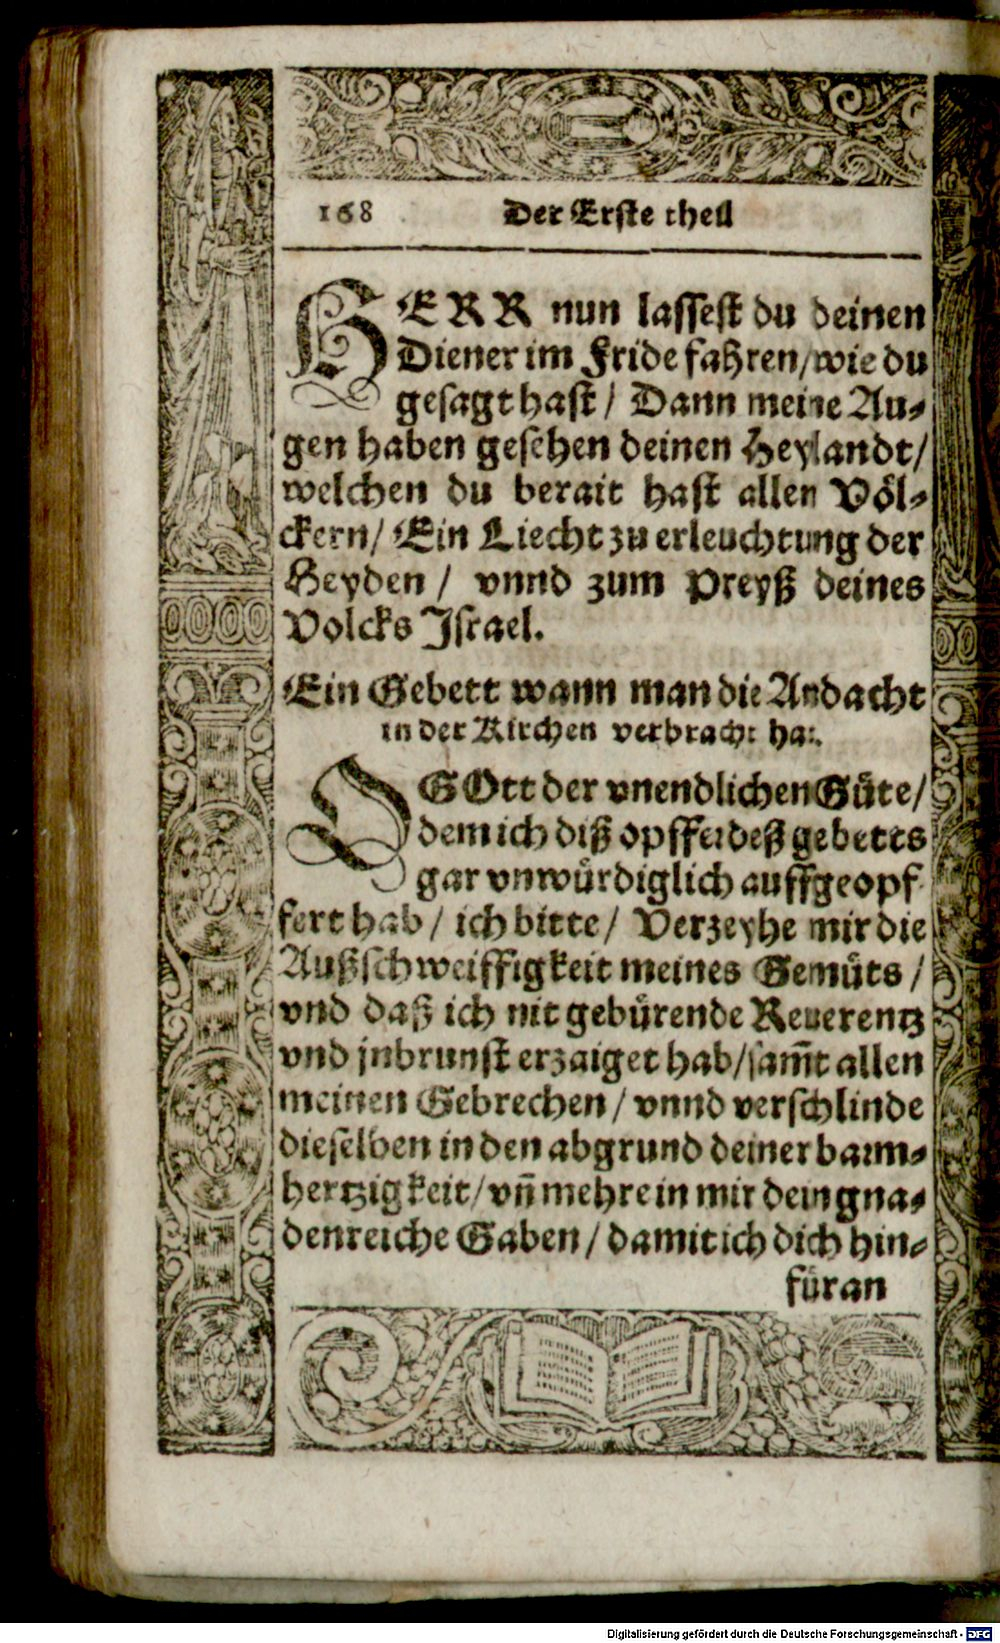 168 Der Erste theil
HERR nun lassest du deinen
Diener im Fride fahren/wie du
gesagt hast/ Dann meine Au⸗
gen haben gesehen deinen Heylandt/
welchen du berait hast allen Völ⸗
ckern/ Ein Liecht zu erleuchtung der
Heyden/ vnnd zum Preyß deines
Volcks Jsrael.
Ein Gebett wann man die Andacht
in der Kirchen verbracht hat.
O GOtt der vnendlichen Güte/
dem ich diß opffer deß gebetts
gar vnwürdiglich auffgeopf⸗
fert hab/ ich bitte/ Verzeyhe mir die
Außschweiffigkeit meines Gemüts/
vnd daß ich nit gebürende Reuerentz
vnd jnbrunst erzaiget hab/sam̃t allen
meinen Gebrechen/ vnnd verschlinde
dieselben in den abgrund deiner barm⸗
hertzigkeit/vn̄ mehre in mir dein gna⸗
denreiche Gaben/ damit ich dich hin⸗
füran
Digitalisierung gefördert durch die Deutsche Forschungsgemeinschaft - DFG